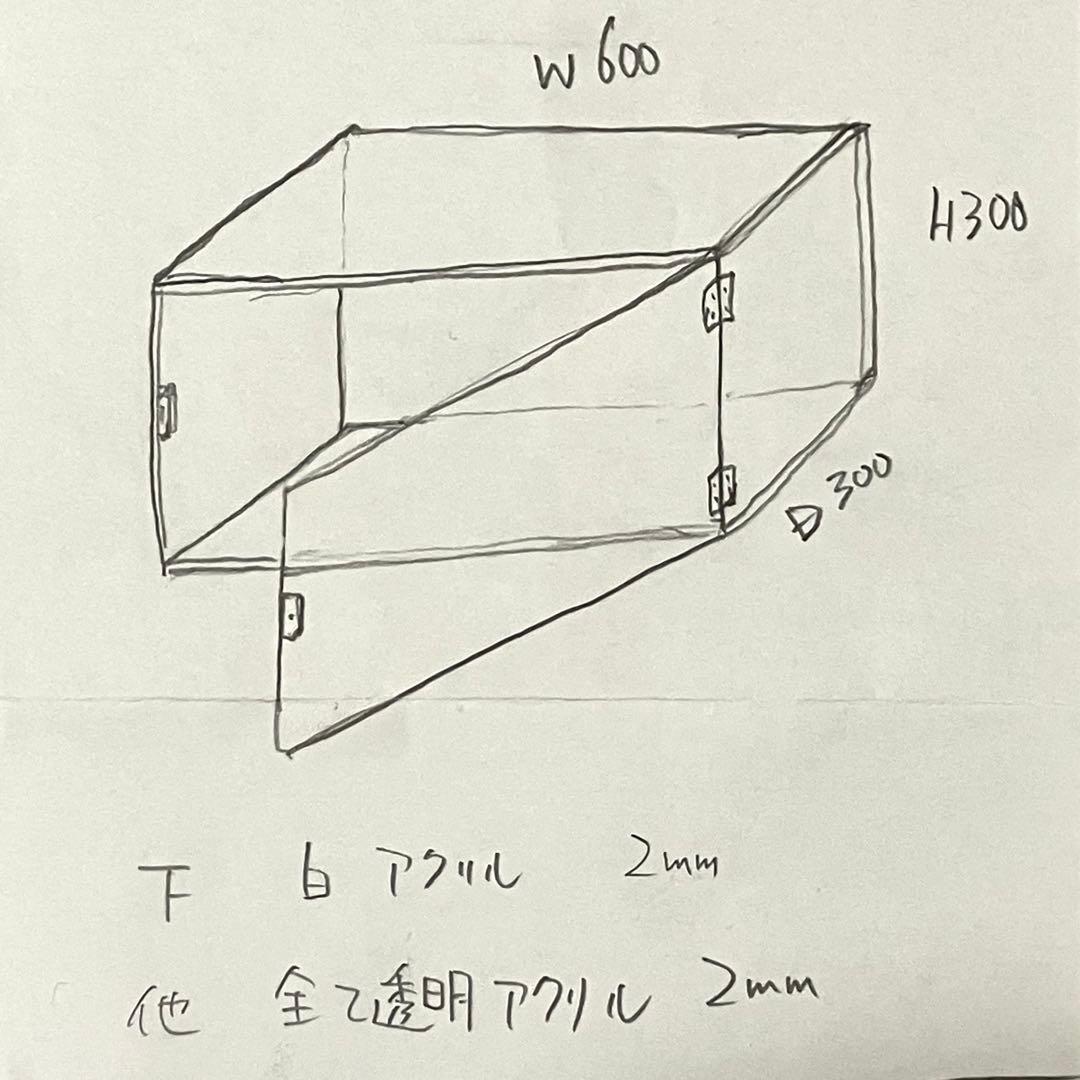 W 600
H300
D 300
下 白 アクリル 2mm
他 全て透明アクリル 2mm